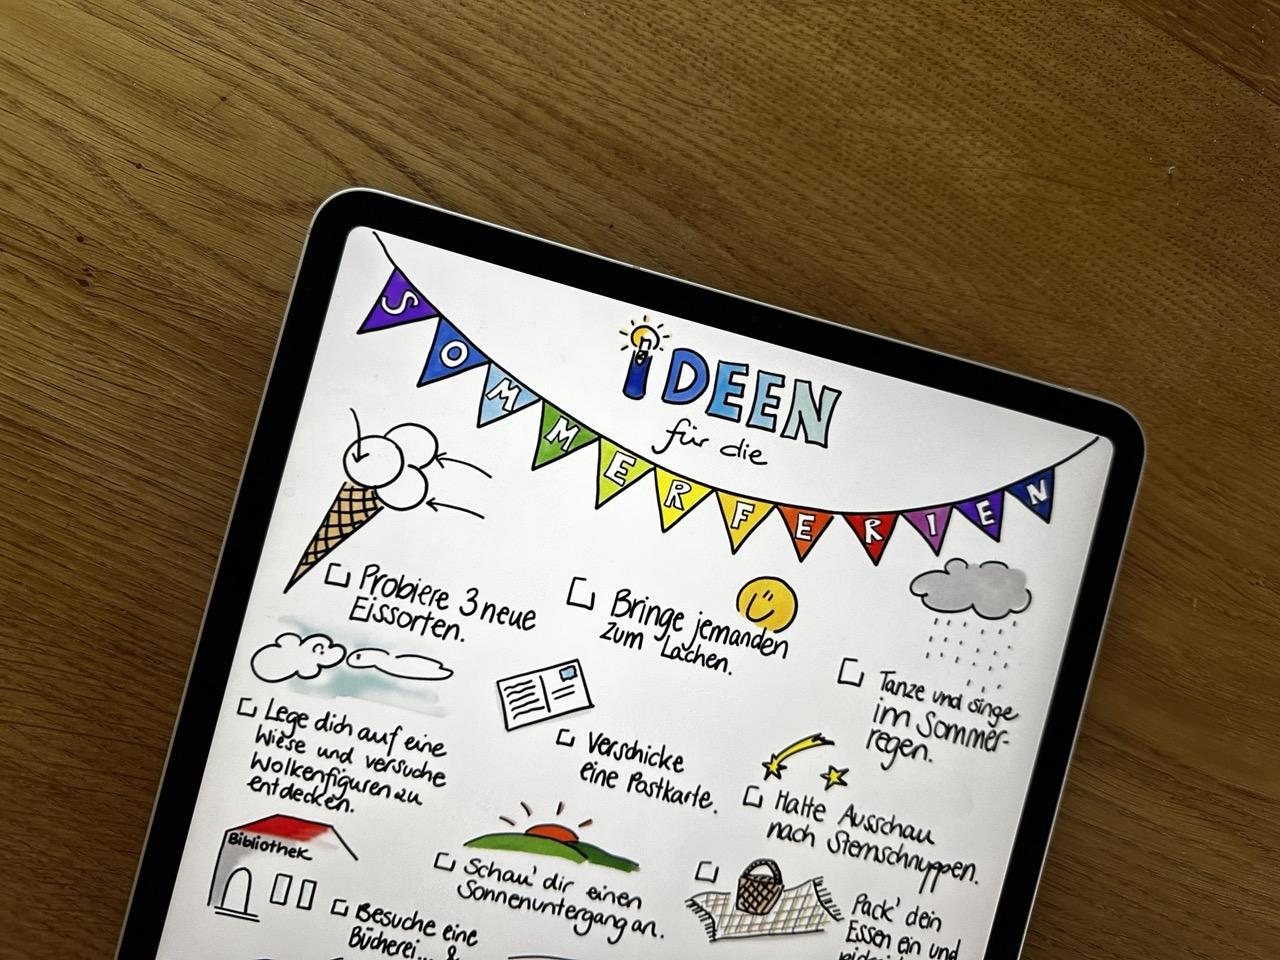 IDEEN
für die
SOMMERFERIEN
Probiere 3 neue
Eissorten.
Bringe jemanden
zum Lachen.
Tanze und singe
im Sommer-
regen.
Lege dich auf eine
Wiese und versuche
Wolkenfiguren zu
entdecken.
Verschicke
eine Postkarte.
Halte Ausschau
nach Sternschnuppen.
Bibliothek
Schau' dir einen
Sonnenuntergang an.
Besuche eine
Bücherei... &
Pack' dein
Essen ein und